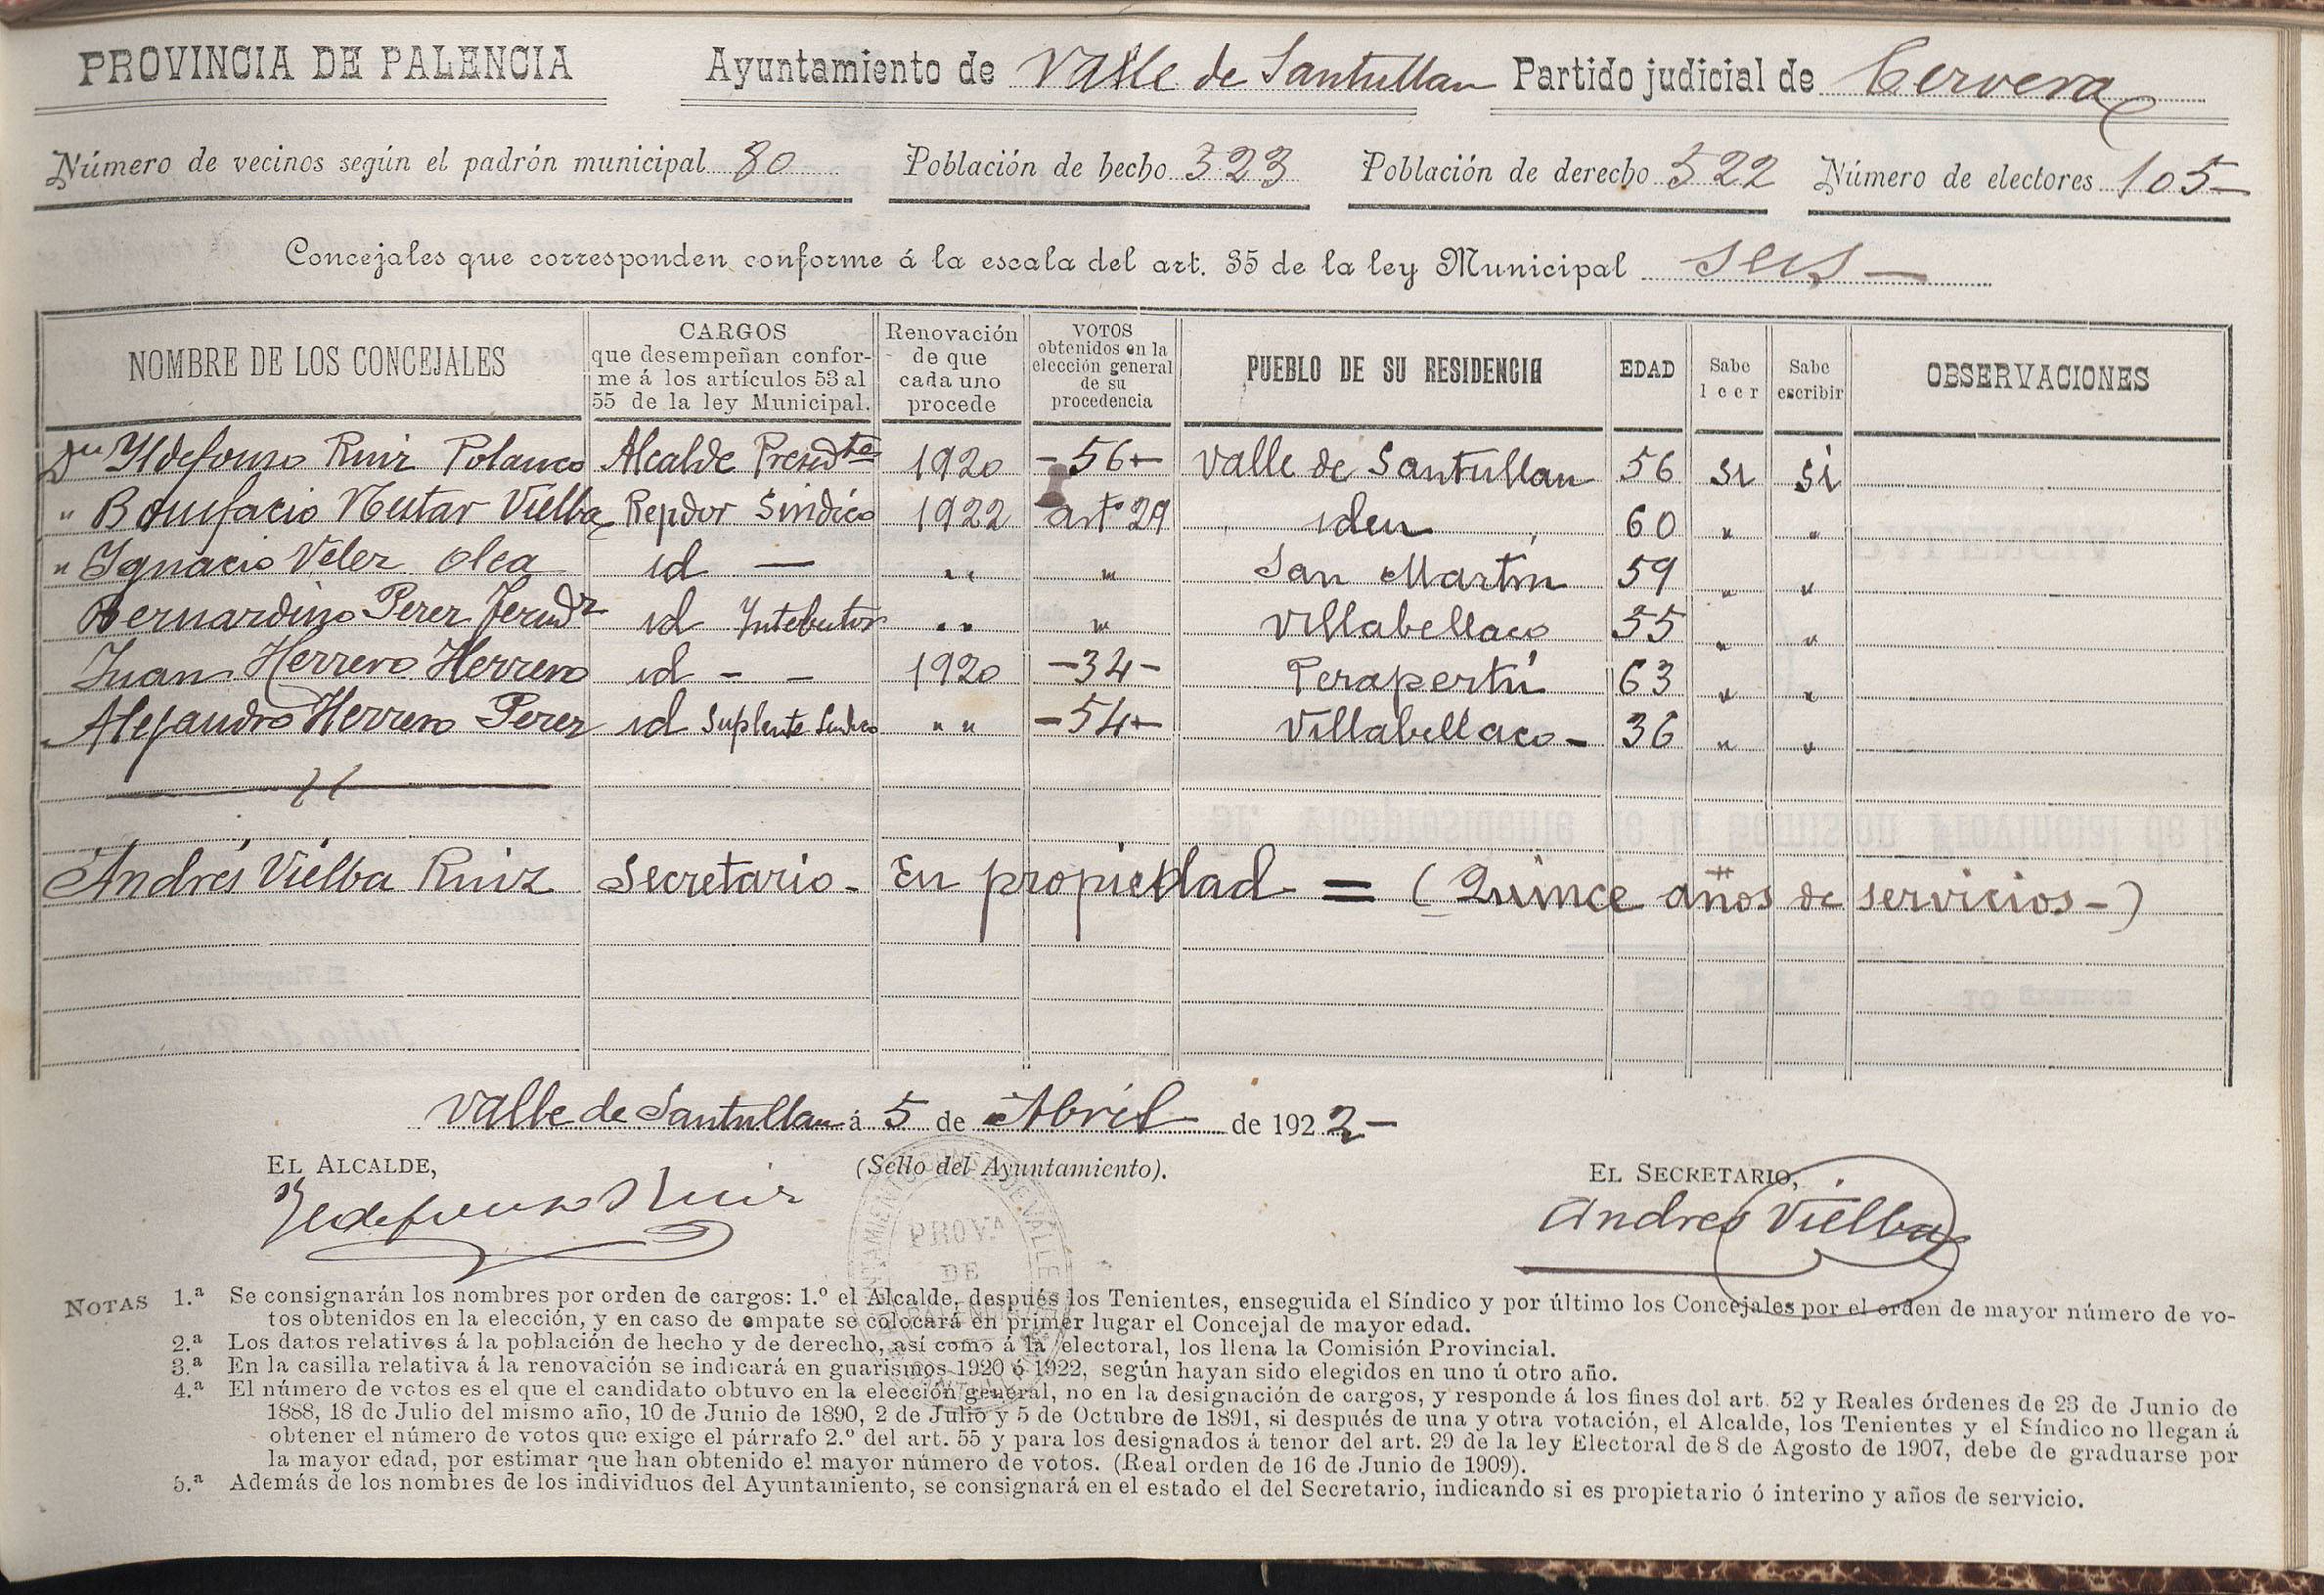 PROVINCIA DE PALENCIA Ayuntamiento de Valle de Santullan Partido judicial de Cervera
Número de vecinos según el padrón municipal 80 Población de hecho 323 Población de derecho 322 Número de electores 105
Concejales que corresponden conforme á la escala del art. 35 de la ley Municipal seis
NOMBRE DE LOS CONCEJALES
CARGOS
que desempeñan confor-
me á los artículos 53 al
55 de la ley Municipal.
Renovación
de que
cada uno
procede
VOTOS
obtenidos en la
elección general
de su
procedencia
PUEBLO DE SU RESIDENCIA
EDAD
Sabe
leer
Sabe
escribir
OBSERVACIONES
Dn Yldefonso Ruiz Polanco Alcalde Presidte 1920 -56- Valle de Santullan 56 si si
" Bonifacio Vielba Repdor Sindico 1922 arto 29 iden 60 " "
" Ygnacio Velez Olea id — " " San Martin 59 " "
Bernardino Perez Ferndz id " " Villabellaco 55 " "
Juan Herrero Herrero id - - 1920 -34- Perapertú 63 " "
Alejandro Herrero Perez id Suplente Sindico " " -54- Villabellaco - 36 " "
Andrés Vielba Ruiz Secretario - En propiedad = (Quince años de servicios -)
Valle de Santullan á 5 de Abril de 1922-
EL ALCALDE, (Sello del Ayuntamiento). EL SECRETARIO,
Yldefonso Ruiz Andres Vielba
PROVA
DE
NOTAS 1.ª Se consignarán los nombres por orden de cargos: 1.º el Alcalde, después los Tenientes, enseguida el Síndico y por último los Concejales por el orden de mayor número de vo-
tos obtenidos en la elección, y en caso de empate se colocará en primer lugar el Concejal de mayor edad.
2.ª Los datos relativos á la población de hecho y de derecho, así como á la electoral, los llena la Comisión Provincial.
3.ª En la casilla relativa á la renovación se indicará en guarismos 1920 ó 1922, según hayan sido elegidos en uno ú otro año.
4.ª El número de votos es el que el candidato obtuvo en la elección general, no en la designación de cargos, y responde á los fines del art. 52 y Reales órdenes de 23 de Junio de
1888, 18 de Julio del mismo año, 10 de Junio de 1890, 2 de Julio y 5 de Octubre de 1891, si después de una y otra votación, el Alcalde, los Tenientes y el Síndico no llegan á
obtener el número de votos que exige el párrafo 2.º del art. 55 y para los designados á tenor del art. 29 de la ley Electoral de 8 de Agosto de 1907, debe de graduarse por
la mayor edad, por estimar que han obtenido el mayor número de votos. (Real orden de 16 de Junio de 1909).
5.ª Además de los nombres de los individuos del Ayuntamiento, se consignará en el estado el del Secretario, indicando si es propietario ó interino y años de servicio.